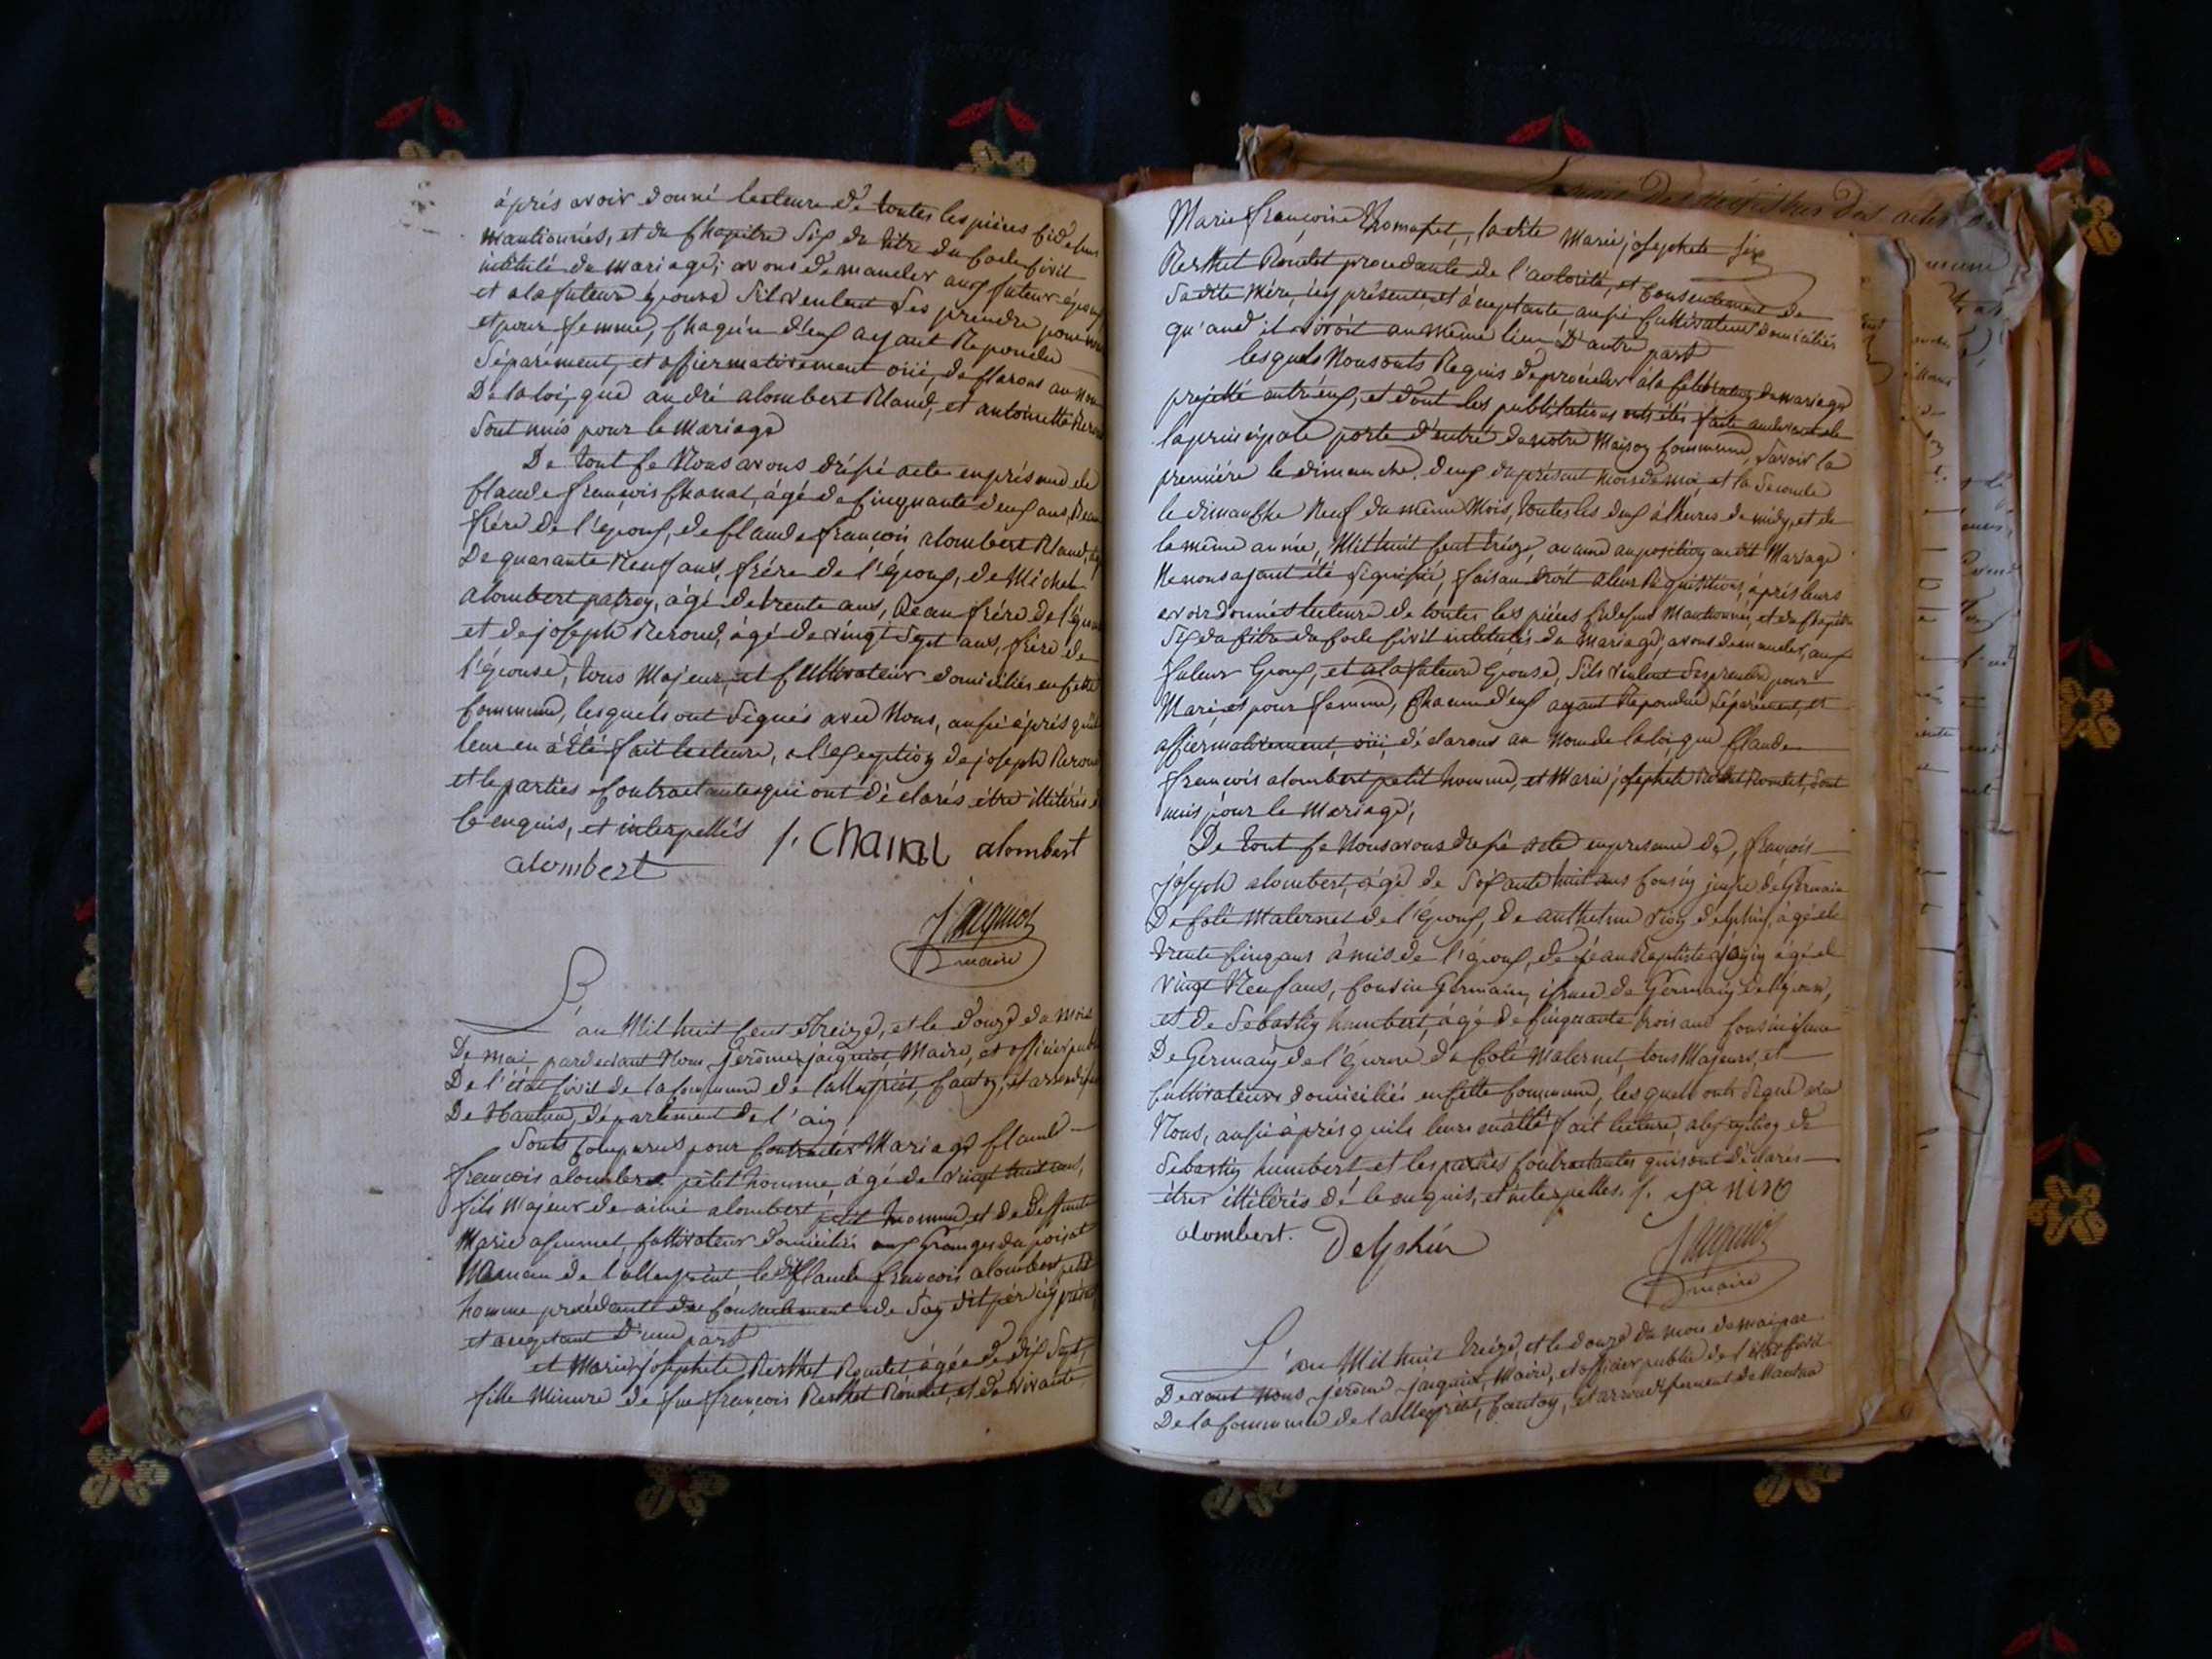 après avoir donné lecteure de toutes les pièces ci dessus
mantionnés, et du chapitre six du titre du code civil
intitulé du mariage; avons demander aux futeur époux
et a la futeure épouse s'ils veulent des prendre pour mari
et pour femme, chaqu'n d'eux ayant Repondu
séparément, et affiermativement oüi, déclarons au nom
De la loi, que andré alombert Pland, et antoinette
sont unis pour le mariage
De tout ce Nous avons dréssé acte en présence de
Claude françois Chanal, âgé de cinquante deux ans, Beau
frére de l'époux, de Claude françois alombert
De quarante Neuf ans, frére de l'époux, de Michel
alombert patroy, âgé de trente ans, Beau frére de l'épouse
et de joseph Reroud, âgé de vingt sept ans, frére de
l'épouse, tous Majeur, et Cultivateur domiciliés en cette
Commune, lesquels ont signés avec Nous, aussi après qu'il
leur en a été fait lecteure, a l'exeption de joseph
et le parties contractantes qui ont déclarés être illitérés
ce enquis, et interpellés f. Chanal alombert
alombert
Jacquiot
maire
L'an Mil huit Cent Treize, et le Douze du mois
De mai pardevant Nous jerôme jacquiot Maire, et officier
De l'état civil de la Commune de Lalleyriat, Canton, et
De Nantua, département de l'ain
sonts Comparus pour Contracter Mariage Claude
françois alombert petit homme, âgé de vingt huit ans,
fils Majeur de aimé alombert petit homme et de deffunte
Marie cultivateur domiciliés aux Granges du poisat
hameau de Lalleyriat, le dit Claude françois alombert petit
homme procédante du Consentement de son dit pére
et aceptant d'une part
et Marie josephete Berthet Roudet âgée de dix sept,
fille mineure de feu françois Berthet Roudet, et de vivante
Marie françoise ladite Marie josephete
Berthet Roudet procedante de l'autorité, et Consentement de
sadite Mére, icy présente et aceptante, aussi Cultivateur domiciliés
qu'and il vivoit au même lieu D'autre part
lesquels Nous onts Requis de procéder a la célébration du mariage
projetté entr'eux, et dont les publications onts étés faite audevant de
la principale porte d'entré de notre Maison Commune, savoir la
première le dimanche deux du présent mois de mai, et la seconde
le dimanche Neuf du même Mois, toutes les deux à l'heures de midy, et de
la même année, Mil huit Cent treize, aucune au dit Mariage
Ne nous ayant été signifié, faisan droit a leur Requisitions, après leurs
avoir donnés lecteure de toutes les piéces ci dessus Mantionnés, et du chapitre
six du titre du code civil intitulés du Mariage, avons demander, aux
futeur Epoux, et a la futeure Epouse, s'ils veulent se prendre pour
Mari, et pour femme, Chacun d'eux ayant Repondu séparément, et
affiermativement, oüi, déclarons au Nom de la loi, que Claude
françois alombert petit homme, et Marie josephete Berthet Roudet, sont
unis pour le mariage,
De tout ce Nous avons dressé acte en presence de, françois
joseph alombert, âgé de soixante huit ans Cousin jssue de Germain
De Coté Maternel de l'époux, de Anthelme Delphin, âgé de
trente cinq ans amis de l'époux, de jean Baptiste âgé de
vingt Neuf ans, Cousin Germain, issue de Germain de l'épouse,
et de Sebastien humbert, âgé de Cinquante trois ans Cousin issue
De Germain de l'épouse du Coté Maternel, tous Majeurs, et
Cultivateurs domiciliés en Cette Commune, les quels onts signé avec
Nous, aussi après qu'ils leurs en a été fait lecture, a l'exeption de
Sebastien humbert, et les parties Contractantes qui sont déclarés
être illitérés de le enquis, et interpelles. f.
alombert. Delphin
Jacquiot
maire
L'an Mil huit treize, et le douze du mois de mai par
Devant Nous jérôme jacquiot, Maire, et officier public de l'état civil
De la Commune de Lalleyriat, Canton, et arrondissement de Nantua